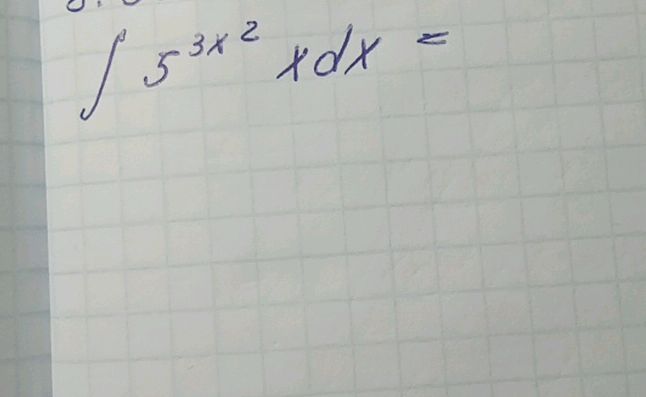 ∫ 5^{3x^2} x dx =